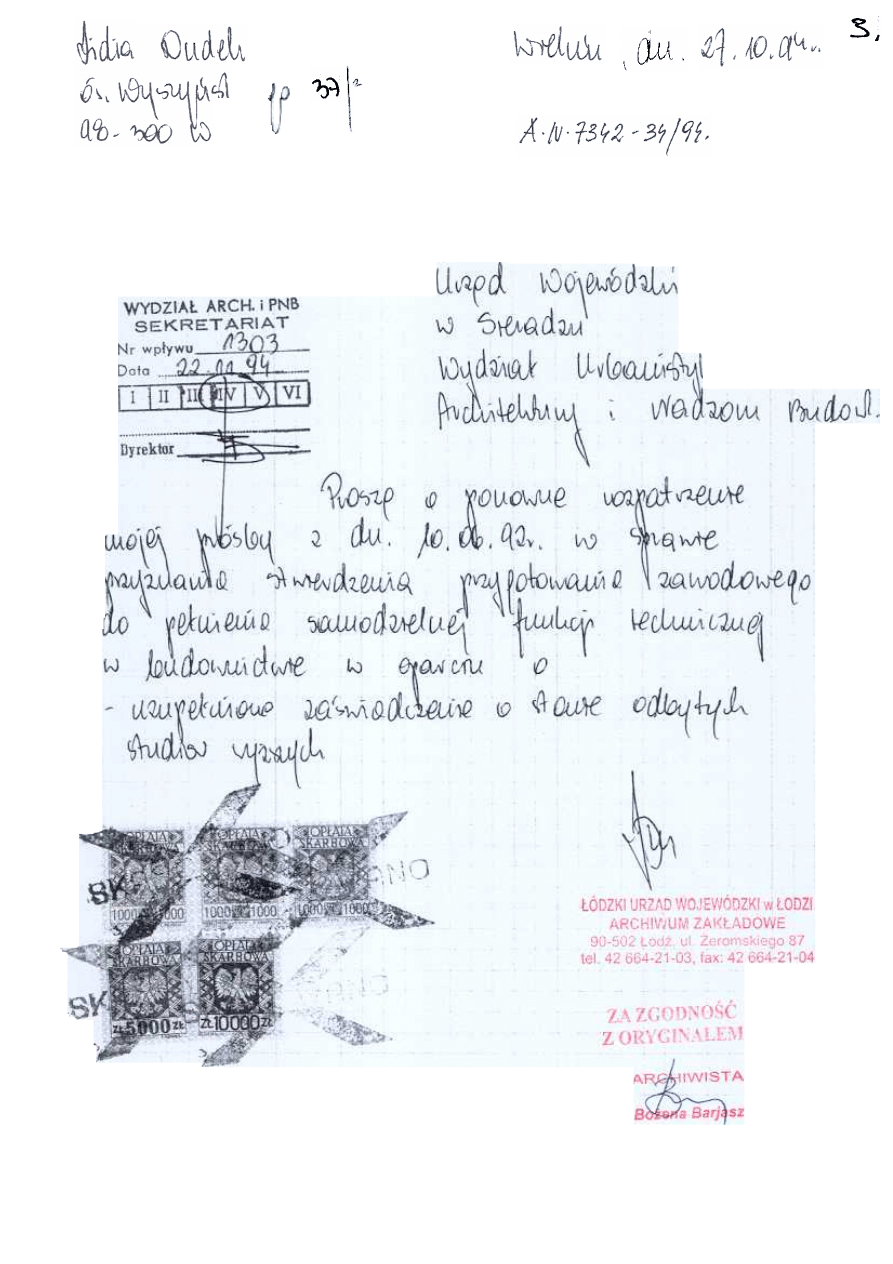 3,
Lidia Dudek
Wieluń, dn. 27.10.94r.
os. Wyszyńsk 37/2
98-300 W
A.IV.7342-34/94.
Urząd Wojewódzki
w Sieradzu
Wydział Urbanistyki
Architektury i Nadzoru Budowl.
WYDZIAŁ ARCH. i PNB
SEKRETARIAT
Nr wpływu 1303
Data 22.11.94
I II III IV V VI
Dyrektor
Proszę o ponowne rozpatrzenie
mojej prośby z dn. 10.06.92r. w sprawie
przyznania stwierdzenia przygotowania zawodowego
do pełnienia samodzielnej funkcji technicznej
w budownictwie w oparciu o
- uzupełnione zaświadczenie o stanie odbytych
studiów wyższych
OPŁATA SKARBOWA OPŁATA SKARBOWA OPŁATA SKARBOWA
1000 1000 1000 1000 1000 1000
OPŁATA SKARBOWA OPŁATA SKARBOWA
ZŁ 5000 ZŁ ZŁ 10000 ZŁ
ŁÓDZKI URZĄD WOJEWÓDZKI w ŁODZI
ARCHIWUM ZAKŁADOWE
90-502 Łódź, ul. Żeromskiego 87
tel. 42 664-21-03, fax: 42 664-21-04
ZA ZGODNOŚĆ
Z ORYGINAŁEM
ARCHIWISTA
Bożena Barjasz